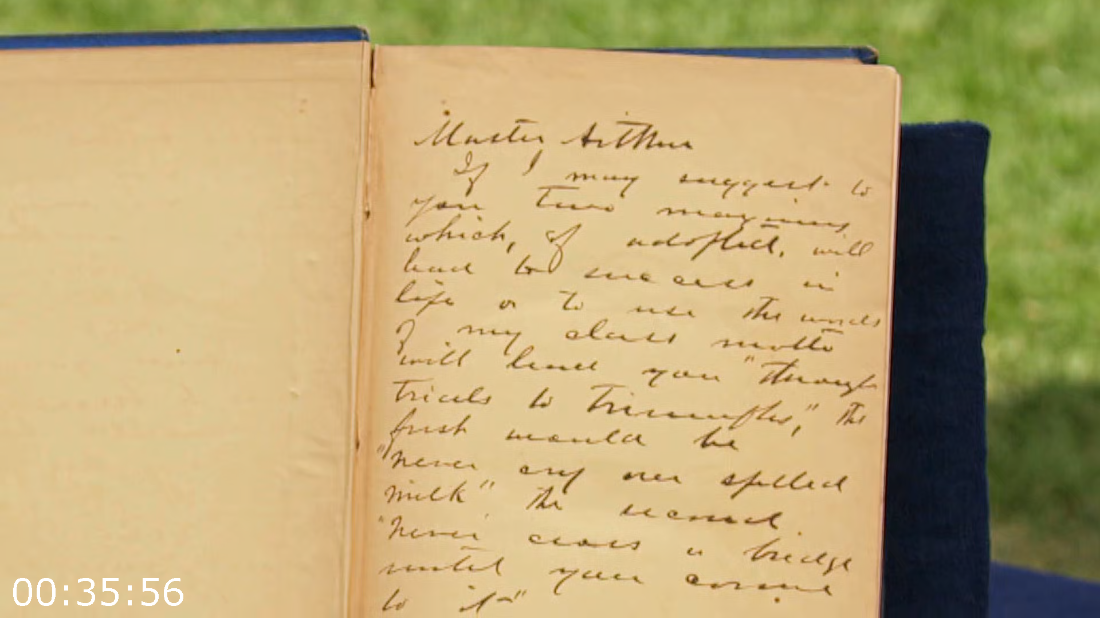 Master Arthur
If I may suggest to
you two maxims,
which, if adopted, will
lead to success in
life or to use the words
of my class motto
will lead you "through
trials to triumphs," the
first would be
"never cry over spilled
milk" the second
"never cross a bridge
until you come
to it"
00:35:56